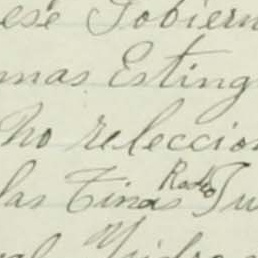 ese Gobiern
mas Esting
No releccion
las Tinas Radio Tu